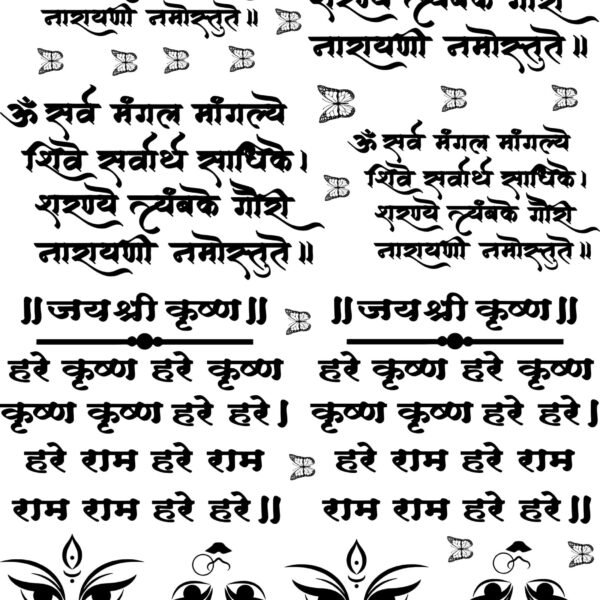 नारायणी नमोस्तुते॥
शरण्ये त्र्यंबके गौरी
नारायणी नमोस्तुते॥
ॐ सर्व मंगल मांगल्ये
शिवे सर्वार्थ साधिके।
शरण्ये त्र्यंबके गौरी
नारायणी नमोस्तुते॥
ॐ सर्व मंगल मांगल्ये
शिवे सर्वार्थ साधिके।
शरण्ये त्र्यंबके गौरी
नारायणी नमोस्तुते॥
॥जय श्री कृष्ण॥
हरे कृष्ण हरे कृष्ण
कृष्ण कृष्ण हरे हरे।
हरे राम हरे राम
राम राम हरे हरे॥
॥जय श्री कृष्ण॥
हरे कृष्ण हरे कृष्ण
कृष्ण कृष्ण हरे हरे।
हरे राम हरे राम
राम राम हरे हरे॥